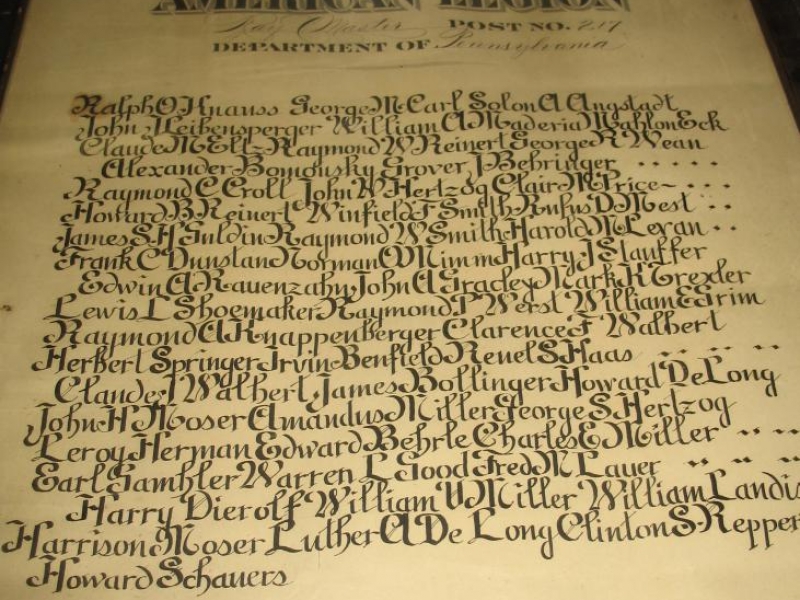 AMERICAN LEGION
Ray Master POST NO. 217
DEPARTMENT OF Pennsylvania
Ralph O Knauss George M Carl Solon A Angstadt
John Heibensperger William A Maderia Mahlon Eck
Claude M Ely - Raymond W Reinert George R Wean
Alexander Bononsky Grover J Behringer . . . . .
Raymond C Croll John W Hertzog Clair M Price ~ . . .
Howard B Reinert Winfield F Smith Rufus D Mest . .
James S H Guldin Raymond W Smith Harold M Lexan . .
Frank C Dunstan Norman O Nimm Harry J Stauffer
Edwin A Rauenzahn John A Gradey Mark K Trexler
Lewis L Shoemaker Raymond P Werst William E Grim
Raymond A Knappenberger Clarence F Walbert
Herbert Springer Irvin Benfield Renel S Haas .. .. .. ..
Claude J Walbert James Bollinger Howard DeLong
John H Moser Amandus Miller George S Hertzog
Leroy Herman Edward Behrle Charles E Miller .. ..
Earl Gambler Warren L Good Fred M Lauer .. .. ..
Harry Dierolf William U Miller William Landis
Harrison Moser Luther A De Long Clinton S Reppert
Howard Schauers